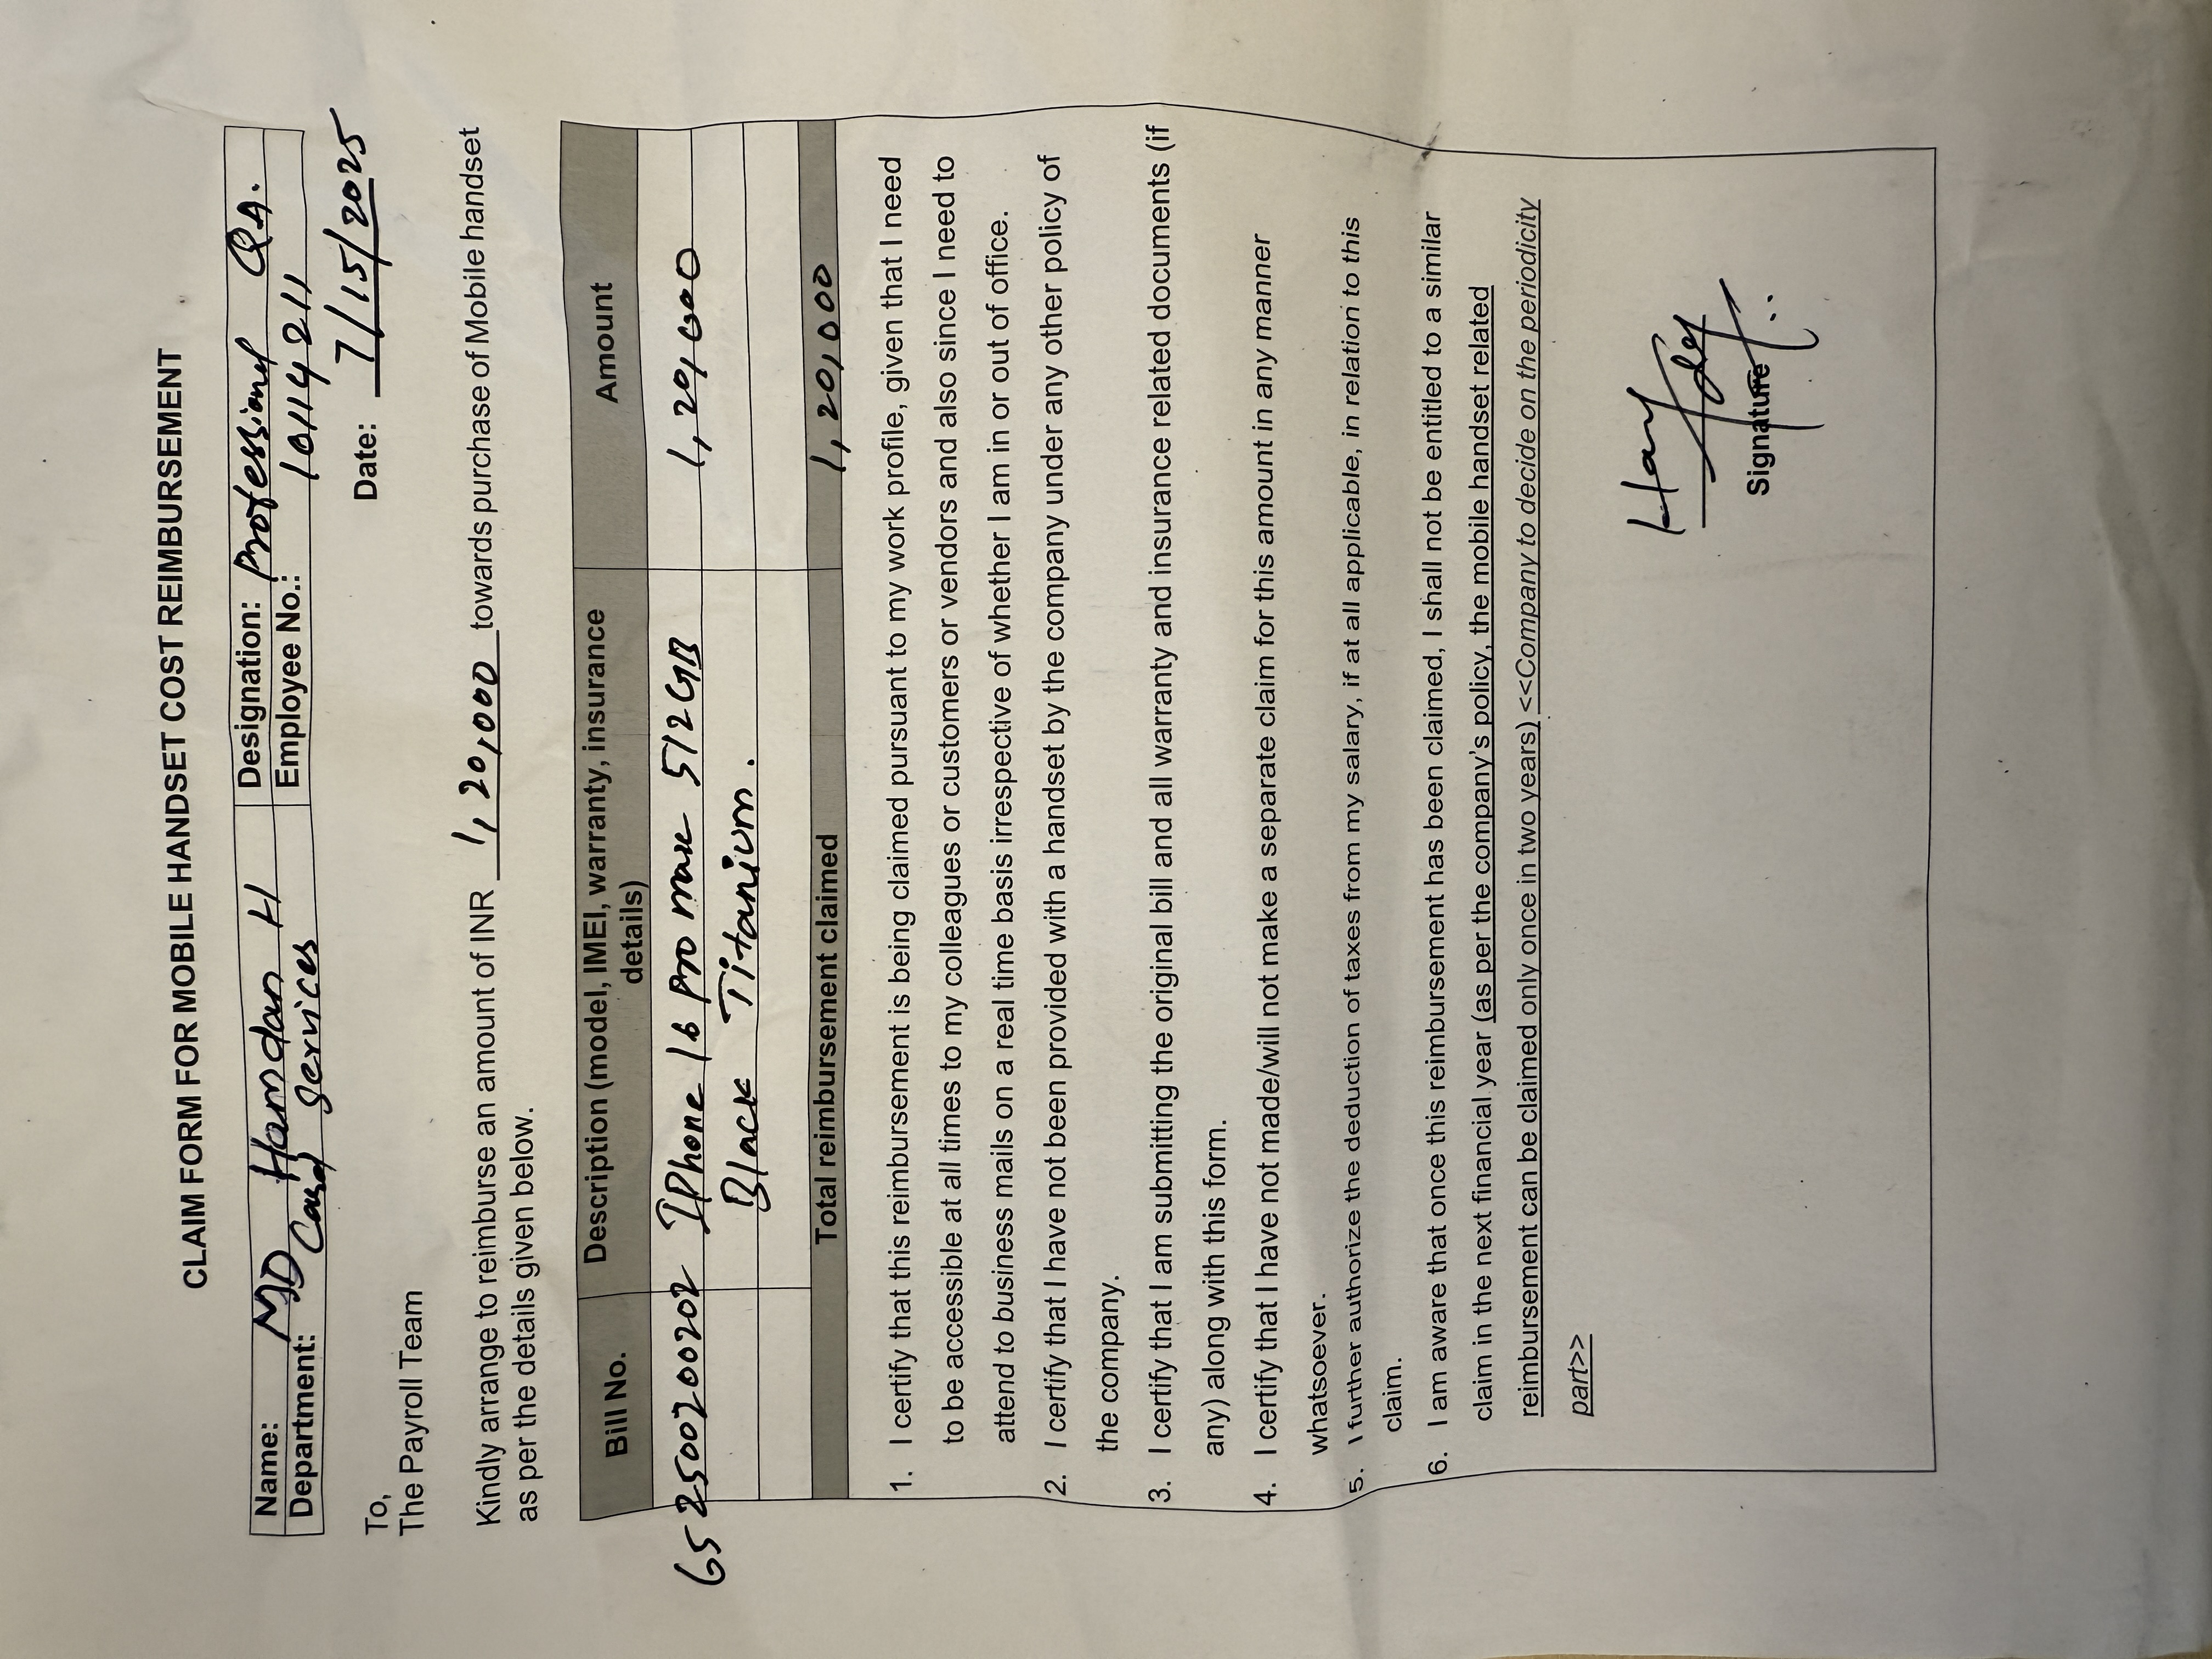 CLAIM FORM FOR MOBILE HANDSET COST REIMBURSEMENT
Name: MD Hamdan H
Designation: Professional QA.
Department: Card Services
Employee No.: 10114211
Date: 7/15/2025
To,
The Payroll Team
Kindly arrange to reimburse an amount of INR 1,20,000 towards purchase of Mobile handset
as per the details given below.
Bill No. Description (model, IMEI, warranty, insurance Amount
details)
652500200202 IPhone 16 Pro max 512GB 1,20,000
Black Titanium.
Total reimbursement claimed 1,20,000
1. I certify that this reimbursement is being claimed pursuant to my work profile, given that I need
to be accessible at all times to my colleagues or customers or vendors and also since I need to
attend to business mails on a real time basis irrespective of whether I am in or out of office.
2. I certify that I have not been provided with a handset by the company under any other policy of
the company.
3. I certify that I am submitting the original bill and all warranty and insurance related documents (if
any) along with this form.
4. I certify that I have not made/will not make a separate claim for this amount in any manner
whatsoever.
5. I further authorize the deduction of taxes from my salary, if at all applicable, in relation to this
claim.
6. I am aware that once this reimbursement has been claimed, I shall not be entitled to a similar
claim in the next financial year (as per the company's policy, the mobile handset related
reimbursement can be claimed only once in two years) <<Company to decide on the periodicity
part>>
Signature